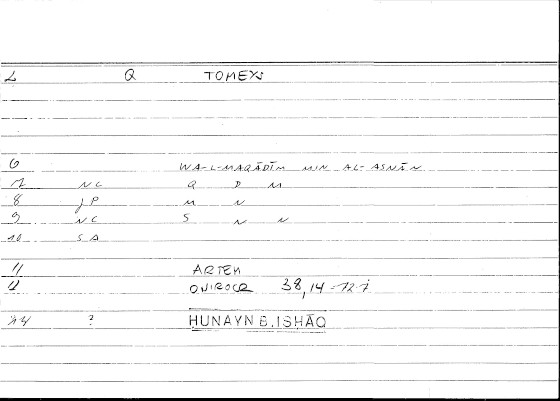 L Q TOMEYS
6 WA-L-MAQĀDĪM MIN AL-ASNĀN
7 NC Q D M
8 JP M N
9 NC S N N
10 SA
11 ARTEM
12 ONIROCR 38,14 -12-7
14 ? HUNAYN B.ISHĀQ